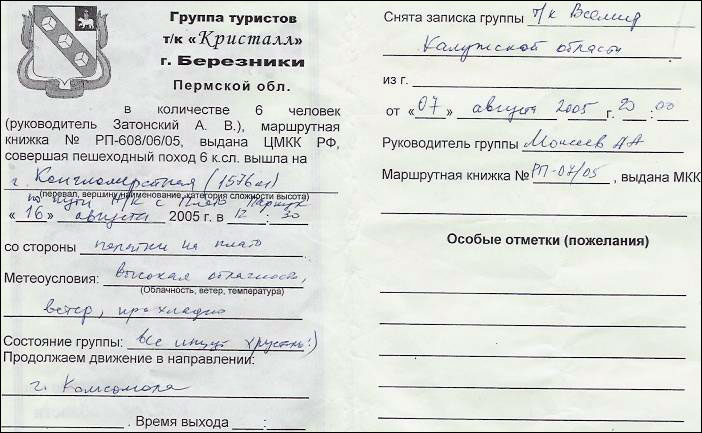 Группа туристов
т/к «Кристалл»
г. Березники
Пермской обл.
в количестве 6 человек
(руководитель Затонский А. В.), маршрутная
книжка № РП-608/06/05, выдана ЦМКК РФ,
совершая пешеходный поход 6 к.сл. вышла на
г. Конгломератная (1576 м)
(перевал, вершину, наименование, категория сложности высота)
по пути н/к с плато
«16» августа 2005 г. в 12 : 30
со стороны перемычки на плато
Метеоусловия: высокая облачность,
(Облачность, ветер, температура)
ветер, прохладно
Состояние группы: все ищут хрусталь :)
Продолжаем движение в направлении:
г. Комсомола
. Время выхода :
Снята записка группы т/к
Калужской области
из г.
от «07» августа 2005 г. :00
Руководитель группы Моисеев АА
Маршрутная книжка № РП-07/05, выдана МКК
Особые отметки (пожелания)